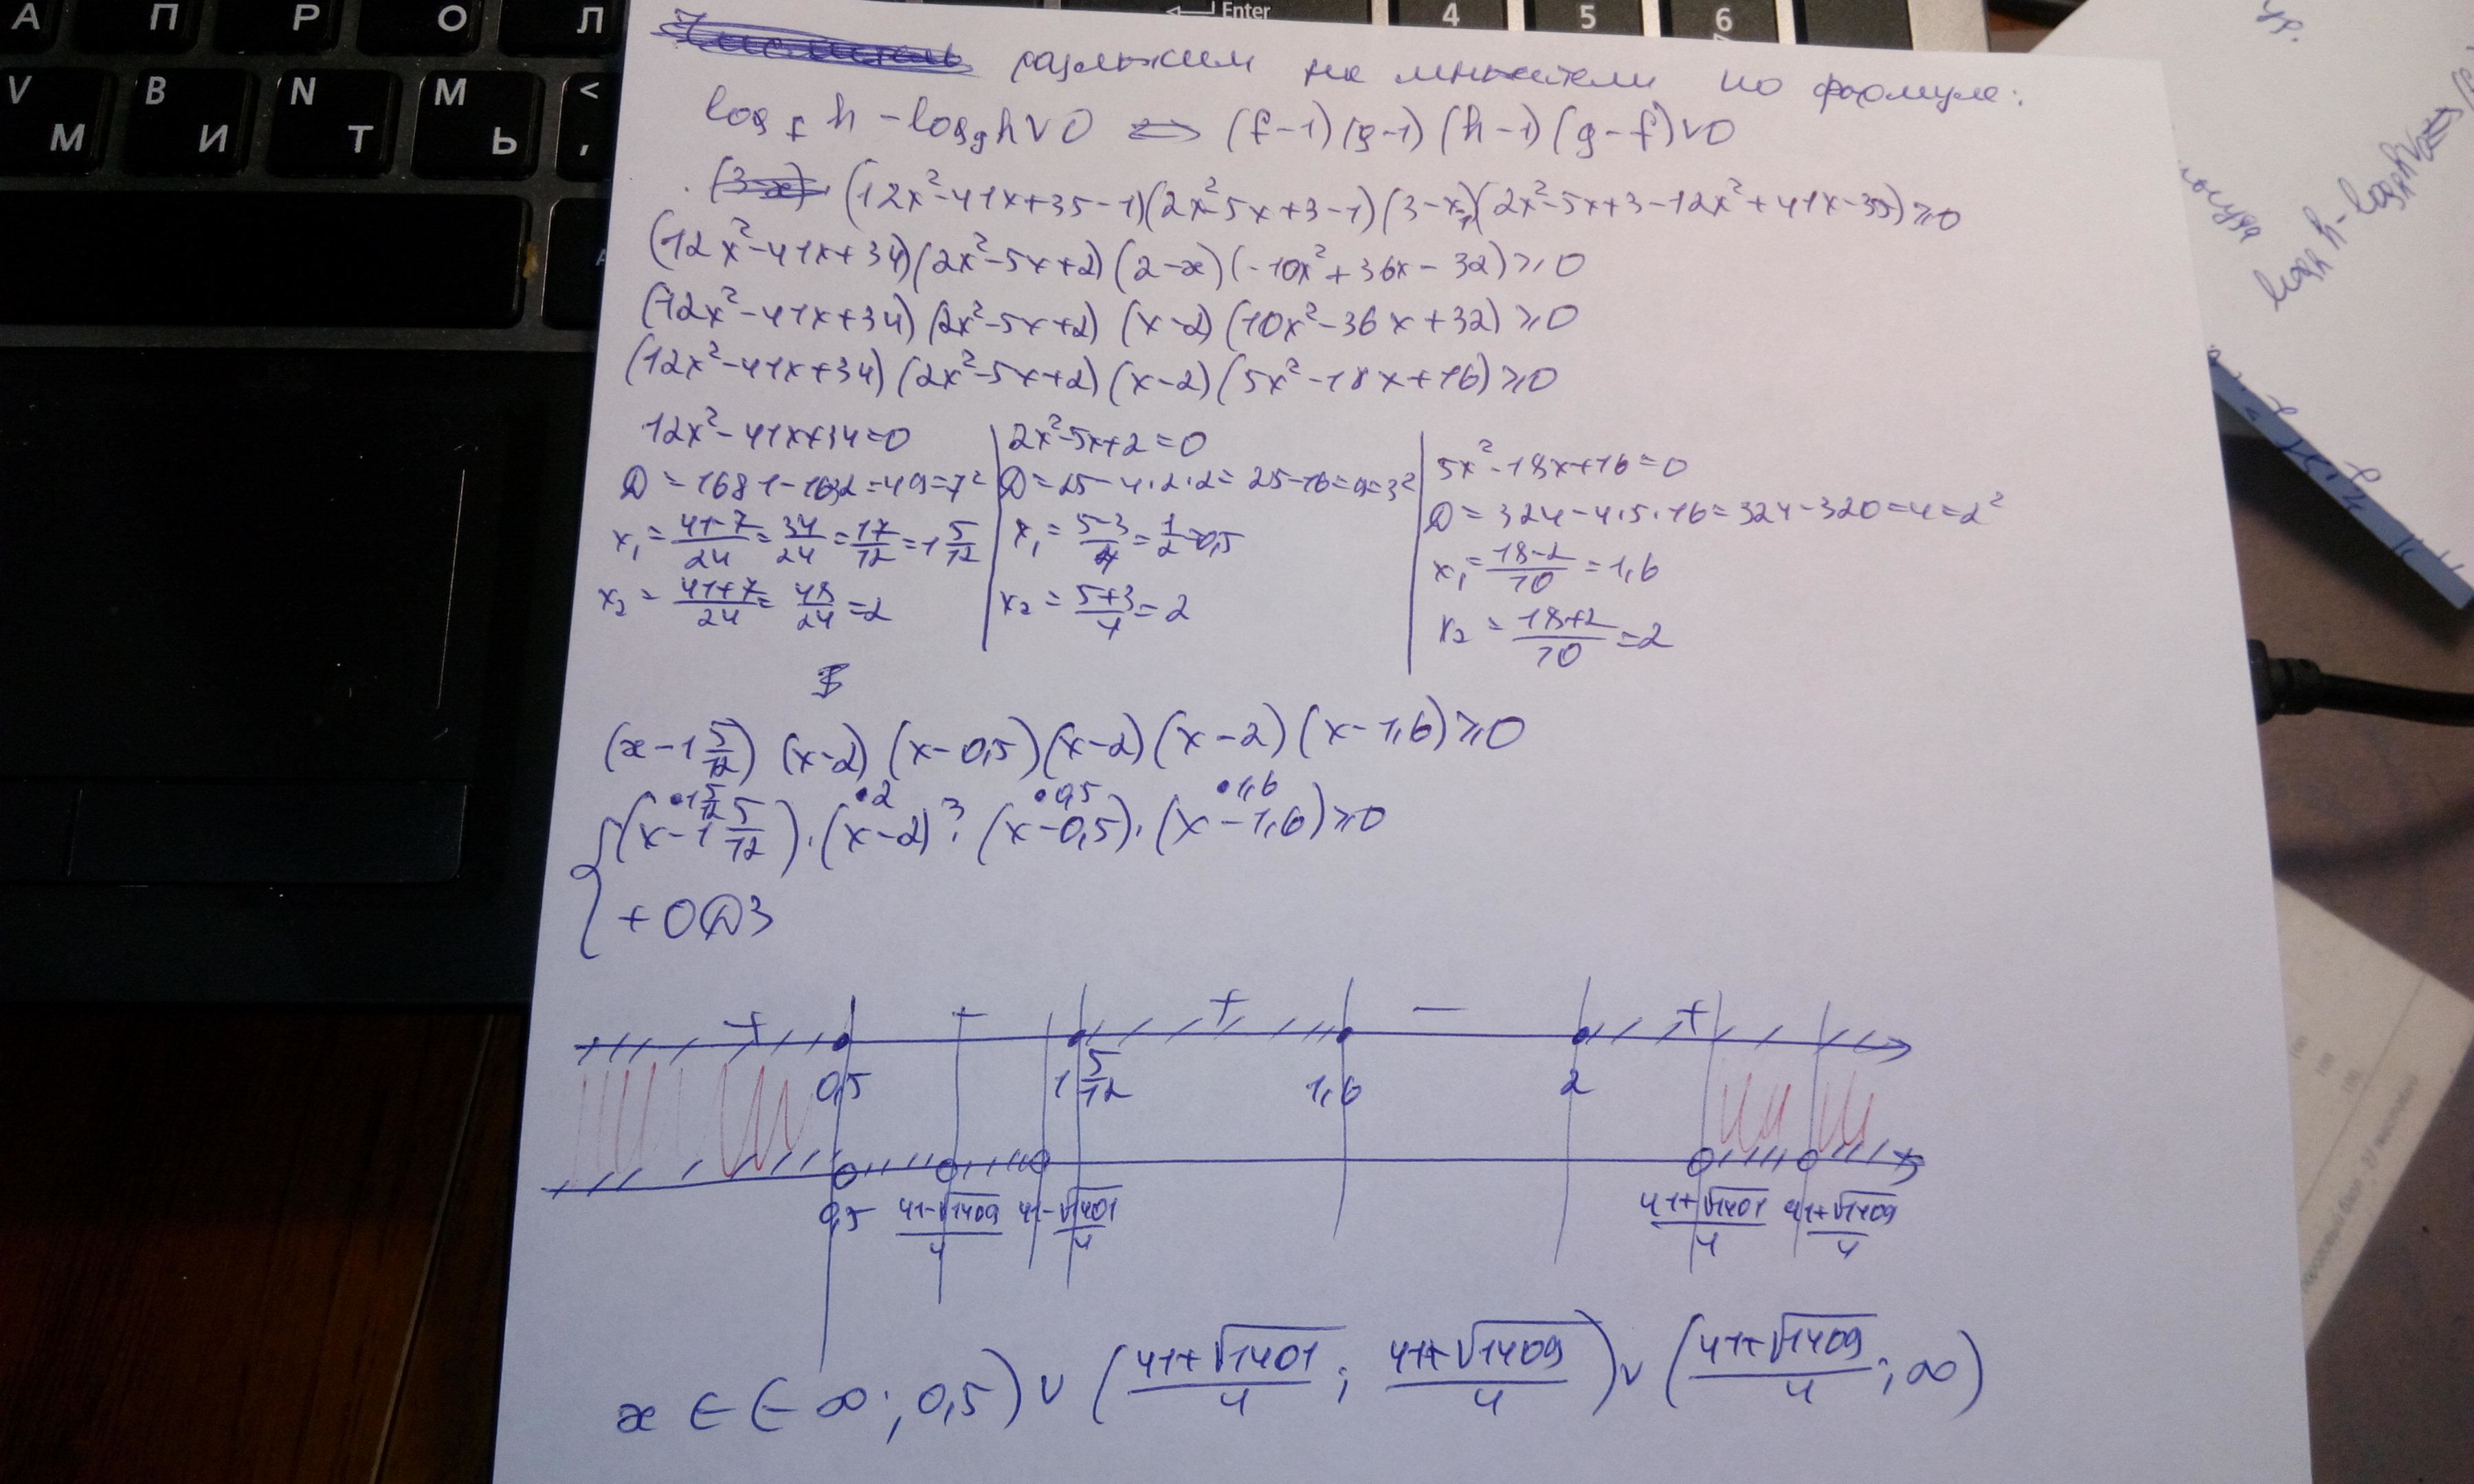 А П Р О Л Enter 4 5 6
V М В И N Т М Ь < ,
разложим на множители по формуле:
log_f h - log_g h ∨ 0 ⇔ (f-1)(g-1)(h-1)(g-f) ∨ 0
(12x²-41x+35-1)(2x²-5x+3-1)(3-x-1)(2x²-5x+3-12x²+41x-35)≥0
(12x²-41x+34)(2x²-5x+2)(2-x)(-10x²+36x-32)≥0
(12x²-41x+34)(2x²-5x+2)(x-2)(10x²-36x+32)≥0
(12x²-41x+34)(2x²-5x+2)(x-2)(5x²-18x+16)≥0
12x²-41x+34=0
D=1681-1632=49=7²
x₁=(41-7)/24=34/24=17/12=1 5/12
x₂=(41+7)/24=48/24=2
2x²-5x+2=0
D=25-4·2·2=25-16=9=3²
x₁=(5-3)/4=1/2=0,5
x₂=(5+3)/4=2
5x²-18x+16=0
D=324-4·5·16=324-320=4=2²
x₁=(18-2)/10=1,6
x₂=(18+2)/10=2
(x-1 5/12)(x-2)(x-0,5)(x-2)(x-2)(x-1,6)≥0
•1 5/12 •2 •0,5 •1,6
{(x-1 5/12)·(x-2)³·(x-0,5)·(x-1,6)≥0
+ОДЗ
+ - + - +
0,5 1 5/12 1,6 2
0,5 (41-√1409)/4 (41-√1401)/4 (41+√1401)/4 (41+√1409)/4
x ∈ (-∞;0,5) ∪ ((41+√1401)/4; (41+√1409)/4) ∪ ((41+√1409)/4; ∞)
ур.